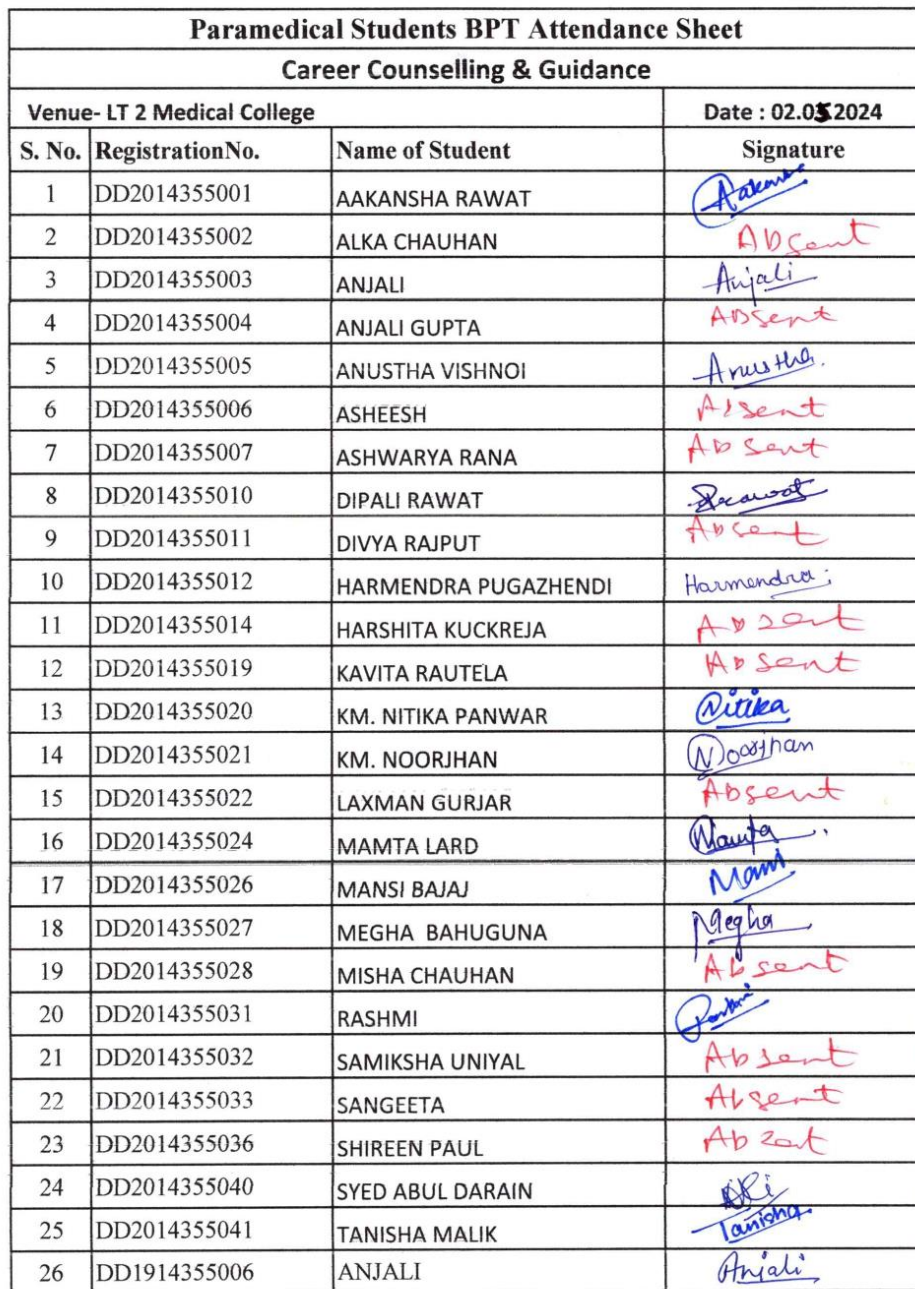 Paramedical Students BPT Attendance Sheet
Career Counselling & Guidance
Venue- LT 2 Medical College Date : 02.05.2024
S. No. RegistrationNo. Name of Student Signature
1 DD2014355001 AAKANSHA RAWAT Aakansha
2 DD2014355002 ALKA CHAUHAN Absent
3 DD2014355003 ANJALI Anjali
4 DD2014355004 ANJALI GUPTA Absent
5 DD2014355005 ANUSTHA VISHNOI Anustha.
6 DD2014355006 ASHEESH Absent
7 DD2014355007 ASHWARYA RANA Absent
8 DD2014355010 DIPALI RAWAT Drawat
9 DD2014355011 DIVYA RAJPUT Absent
10 DD2014355012 HARMENDRA PUGAZHENDI Harmendra
11 DD2014355014 HARSHITA KUCKREJA Absent
12 DD2014355019 KAVITA RAUTELA Absent
13 DD2014355020 KM. NITIKA PANWAR Nitika
14 DD2014355021 KM. NOORJHAN Noorjhan
15 DD2014355022 LAXMAN GURJAR Absent
16 DD2014355024 MAMTA LARD Mamta
17 DD2014355026 MANSI BAJAJ
18 DD2014355027 MEGHA BAHUGUNA Megha
19 DD2014355028 MISHA CHAUHAN Absent
20 DD2014355031 RASHMI
21 DD2014355032 SAMIKSHA UNIYAL Absent
22 DD2014355033 SANGEETA Absent
23 DD2014355036 SHIREEN PAUL Absent
24 DD2014355040 SYED ABUL DARAIN
25 DD2014355041 TANISHA MALIK Tanisha
26 DD1914355006 ANJALI Anjali